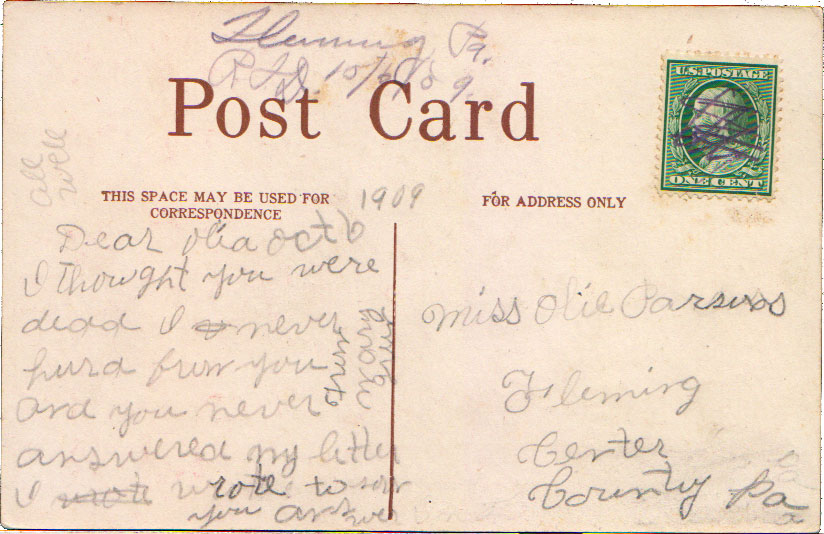 Fleming Pa.
R.F.D. 10/6/09.
U.S. POSTAGE
ONE CENT
Post Card
all
well
THIS SPACE MAY BE USED FOR
CORRESPONDENCE
1909
FOR ADDRESS ONLY
Dear Olia Oct 6
I thought you were
dead I never
hurd from you
and you never
answered my letter
I wrote wrote to
you answer
Miss Olie Parsons
Fleming
Center
County Pa